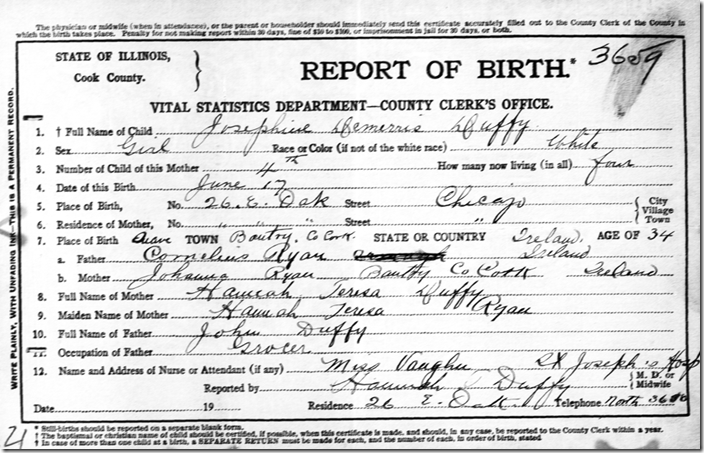 The physician or midwife (when in attendance), or the parent or householder should immediately send this certificate accurately filled out to the County Clerk of the County in
which the birth takes place. Penalty for not making report within 30 days, fine of $10 to $100, or imprisonment in jail for 30 days, or both.
STATE OF ILLINOIS,
Cook County.
REPORT OF BIRTH.* 3659
VITAL STATISTICS DEPARTMENT—COUNTY CLERK'S OFFICE.
WRITE PLAINLY, WITH UNFADING INK. THIS IS A PERMANENT RECORD.
1. † Full Name of Child Josephine Demerris Duffy
2. Sex Girl Race or Color (if not of the white race) White
3. Number of Child of this Mother 4th How many now living (in all) four
4. Date of this Birth June 17
5. Place of Birth, No. 26. E. Oak Street Chicago City Village Town
6. Residence of Mother, No. " " " " Street "
7. Place of Birth TOWN Bantry, Co Cork. STATE OR COUNTRY Ireland. AGE OF 34
a. Father Cornelius Ryan Ireland
b. Mother Johanna Ryan Bantry Co Cork Ireland
8. Full Name of Mother Hannah Teresa Duffy
9. Maiden Name of Mother Hannah Teresa Ryan
10. Full Name of Father John Duffy
11. Occupation of Father Grocer
12. Name and Address of Nurse or Attendant (if any) Miss Vaughn St Joseph's Hosp
Reported by Hannah Duffy M. D. or Midwife
Date 19 Residence 26 E. Oak. Telephone North
* Still-births should be reported on a separate blank form.
† The baptismal or christian name of child should be certified, if possible, when this certificate is made, and should, in any case, be reported to the County Clerk within a year.
‡ In case of more than one child at a birth, a SEPARATE RETURN must be made for each, and the number of each, in order of birth, stated